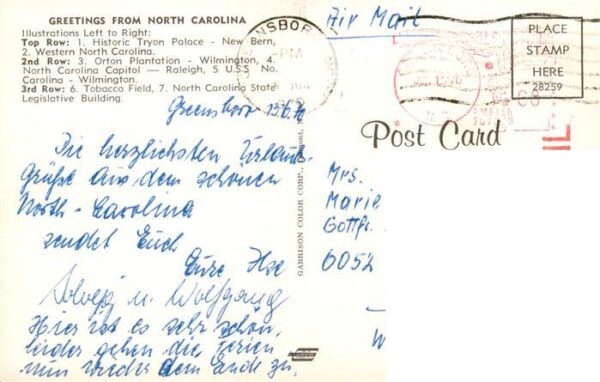 GREETINGS FROM NORTH CAROLINA
Illustrations Left to Right:
Top Row: 1. Historic Tryon Palace - New Bern,
2. Western North Carolina.
2nd Row: 3. Orton Plantation - Wilmington, 4.
North Carolina Capitol — Raleigh, 5 U.S.S. No.
Carolina - Wilmington.
3rd Row: 6. Tobacco Field, 7. North Carolina State
Legislative Building.
NSBOR
PM
JUN
Air Mail
PLACE
STAMP
HERE
28259
Post Card
Greensboro
Die herzlichsten Urlaubs-
Grüße aus dem schönen
North-Carolina
sendet Euch
Eure Ilse
Solveig u. Wolfgang
Hier ist es sehr schön,
leider gehen die Ferien
nun wieder dem Ende zu.
GARRISON COLOR CORP.
Mrs.
Marie
Gottfr.
6052
W